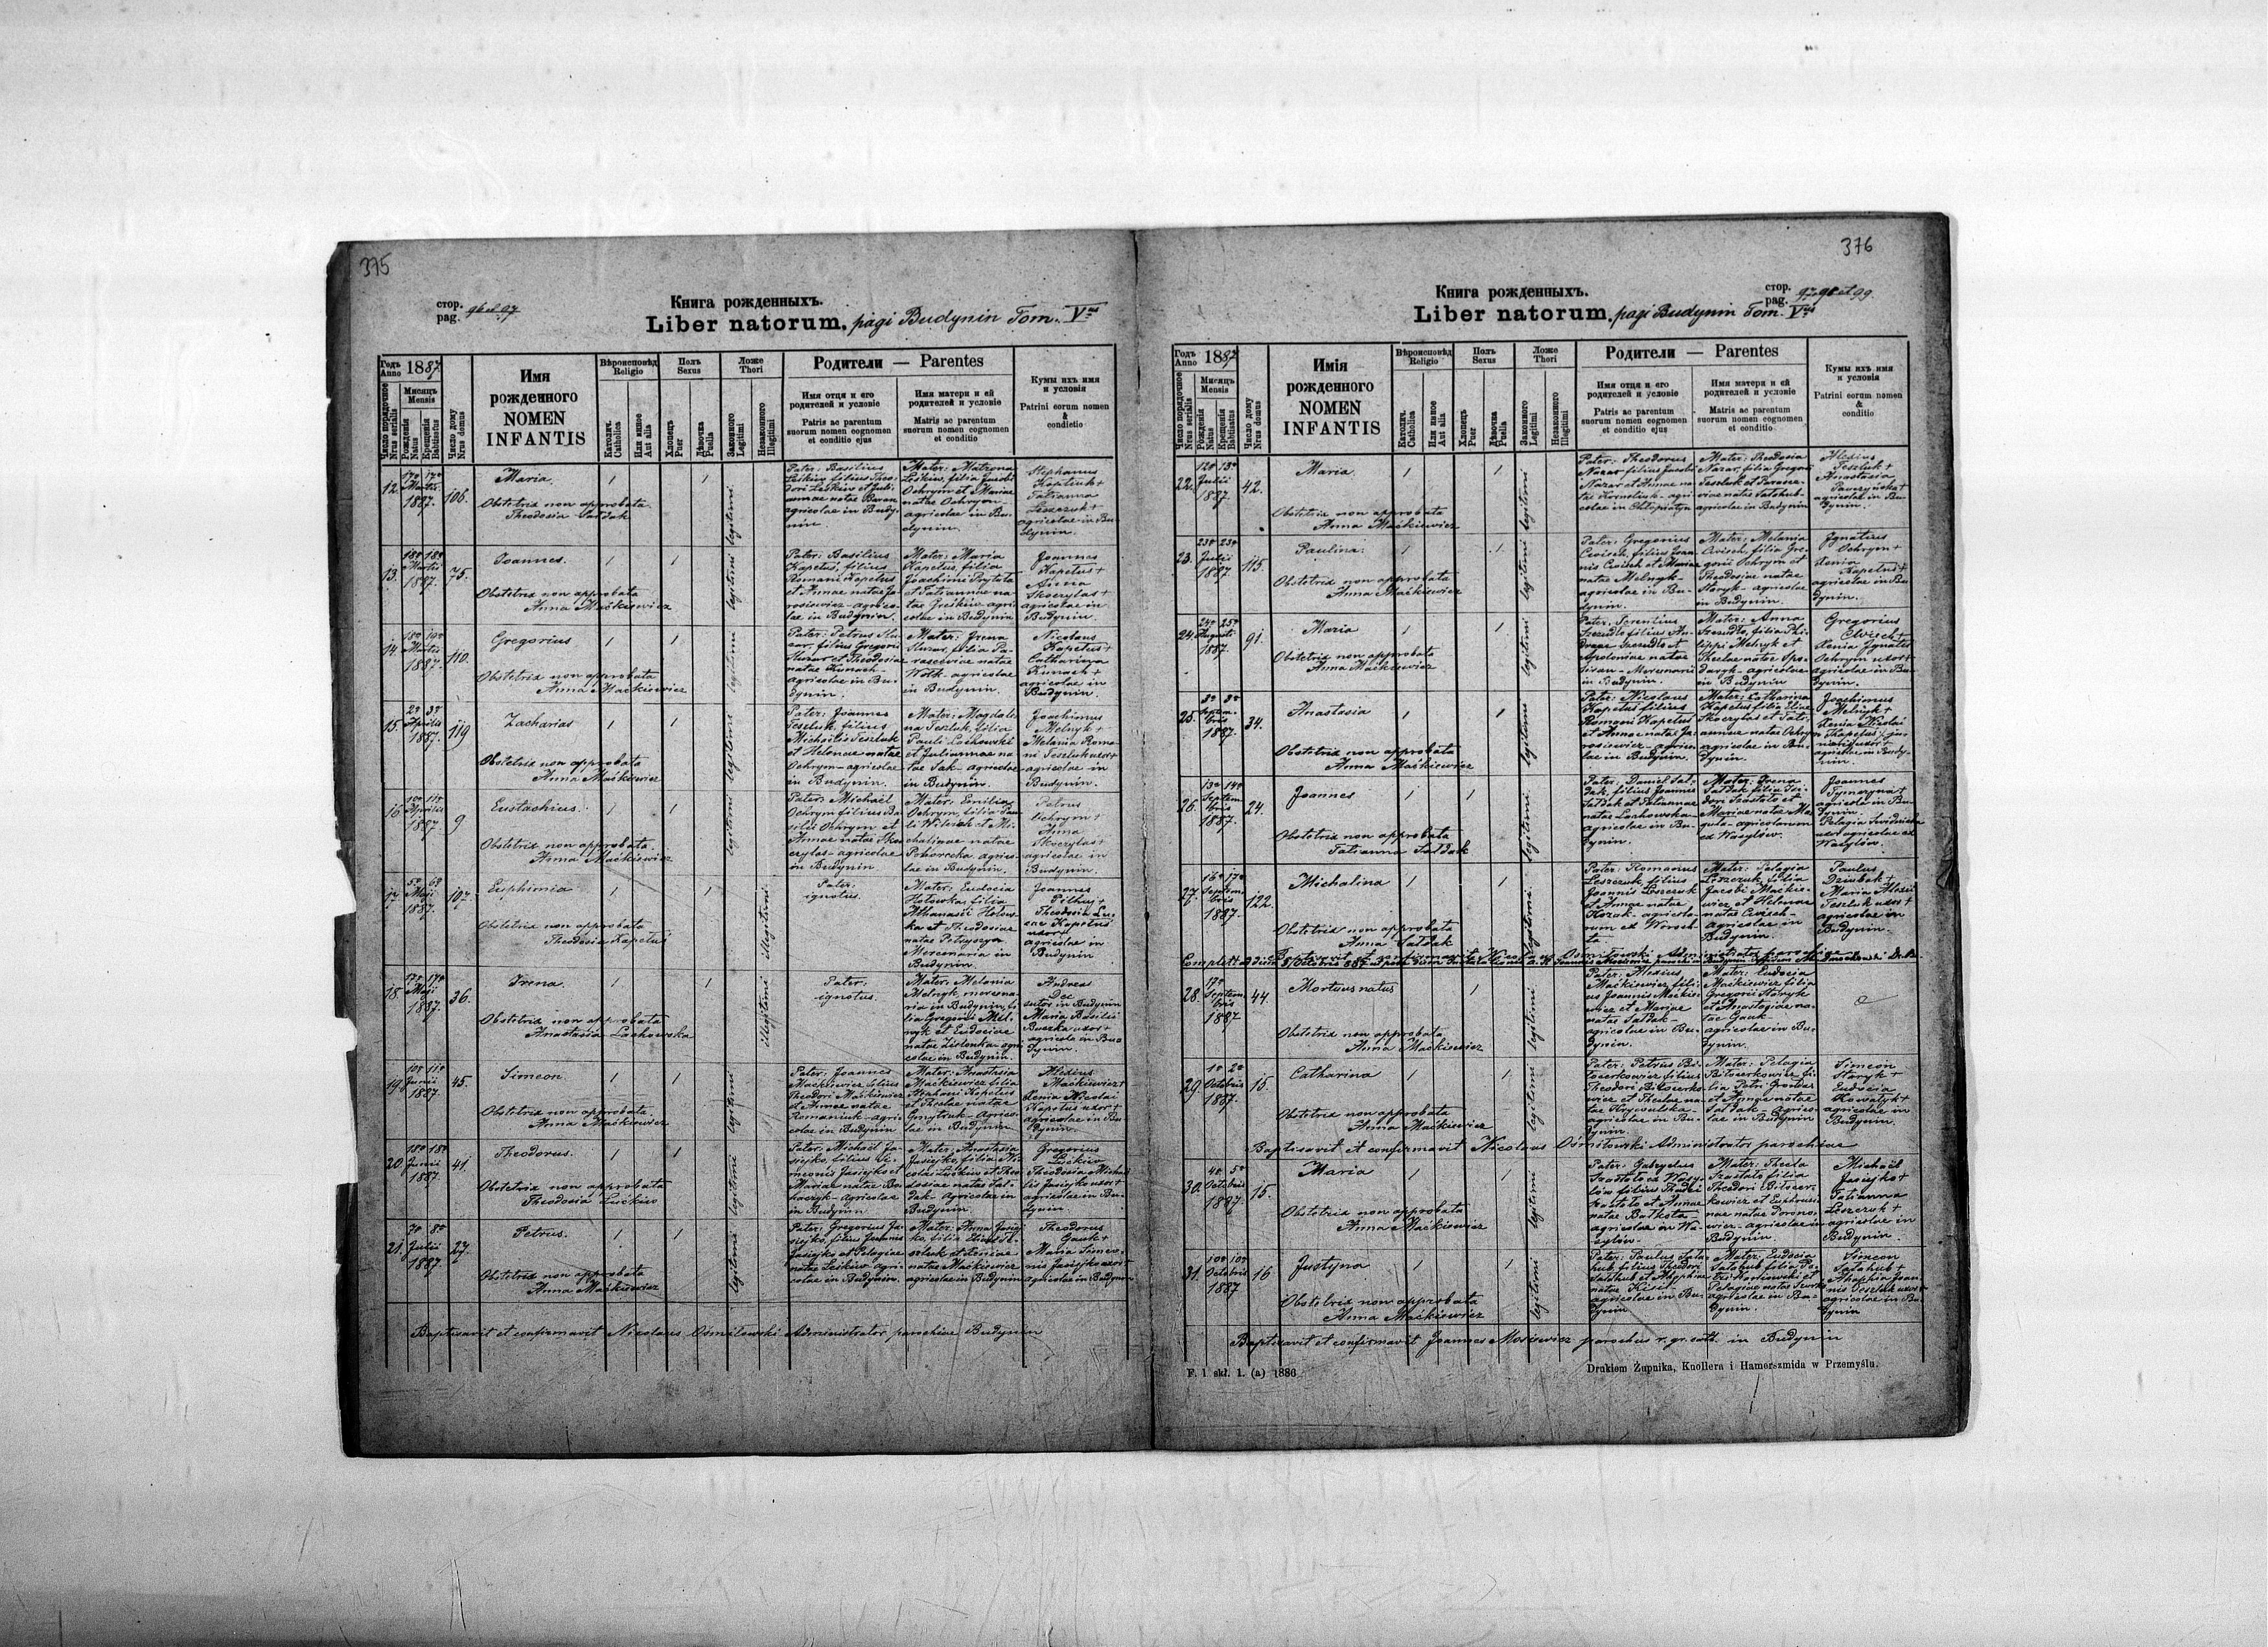 375
стор.
pag. 96 et 97
Книга рожденныхъ.
Liber natorum, pagi Budynin Tom. V
Годъ
Anno 1887
Число порядочное
Nrus serialis
Мисяцъ
Mensis
Рождения
Natus
Крещения
Babtisatus
Число дому
Nrus domus
Имя
рожденного
NOMEN
INFANTIS
Вѣроисповѣд
Religio
Католич.
Catholica
Или инное
Aut alia
Полъ
Sexus
Хлопецъ
Puer
Дѣвочка
Puella
Ложе
Thori
Законного
Legitimi
Незаконного
Illegitimi
Родители — Parentes
Имя отця и его
родителей и условіе
Patris ac parentum
suorum nomen cognomen
et conditio ejus
Имя матери и ей
родителей и условіе
Matris ac parentum
suorum nomen cognomen
et conditio
Кумы ихъ имя
и условія
Patrini eorum nomen
&
condictio
12.
17a 17a
Martii
1887.
106.
Maria.
Obstetrix non approbata
Theodosia Sałdak
legitimi
Pater: Basilius
Leśkiw filius Theo-
dori Leśkiw et Juli-
annae natae Baran
agricolae in Budy-
nin.
Mater: Matrona
Leśkiw, filia Jacobi
Ochrym et Mariae
natae Ochrym
agricolae in Bu-
dynin.
Stephanus
Tatianna
Leszczuk +
agricolae in Bu-
dynin.
13.
18a 18a
Martii
1887.
75.
Joannes.
Obstetrix non approbata
Anna Maćkiewicz
legitimi
Pater: Basilius
Kapeluś, filius
Romani Kapelus
et Annae natae Ja-
rosiewicz - agrico-
lae in Budynin.
Mater: Maria
Kapelus, filia
Joachimi Prytuła
et Tatiannae na-
tae Greśkiw agri-
colae in Budynin
Joannes
Kapelus +
Anna
Skoczylas +
agricolae in
Budynin.
14.
18a 19a
Martii
1887.
110.
Gregorius
Obstetrix non approbata
Anna Maćkiewicz
legitimi
natae Kunach
agricolae in Bu-
dynin.
Mater: Irena
rasceviae natae
Wołk - agricolae
in Budynin.
Nicolaus
Kapelus +
Catharina
Kunach +
agricolae in
Budynin.
15.
2a 3a
Aprilis
1887.
119
Zacharias
Obstetrix non approbata
Anna Maćkiewicz
legitimi
Pater: Joannes
Teszluk, filius
Michaelis Teszluk
et Helenae natae
Ochrym - agricolae
in Budynin.
Mater: Magdale-
na Teszluk, filia
Pauli Lachowski
et Juliannae na-
tae Sak - agricolae
in Budynin.
Joachimus
Melnyk +
Melania Roma-
ni Teszluk uxor +
agricolae in
Budynin.
16
10a 11a
Aprilis
1887
9
Eustachius.
Obstetrix non approbata.
Anna Maćkiewicz
legitimi
Pater: Michaël
Ochrym filius Ba-
silii Ochrym et
Annae natae Sko-
czylas - agricolae
in Budynin
Mater: Emilia
Ochrym, filia Pau-
chalinae natae
lae in Budynin.
Petrus
Ochrym +
Anna
Skoczylas +
agricolae in
Budynin.
17.
5a 6a
Maji
1887.
107.
Euphimia
Obstetrix non approbata
Theodosia Kapeluś
illegitimi
Pater:
ignotus.
Mater: Eudocia
Hołowka, filia
Athanasii Hołow-
ka et Theodosiae
natae Petryszyn
Mercenaria in
Budynin.
Joannes
Pilhuj +
Theodosia Lu-
cae Kapelus
uxor +
agricolae in
Budynin
18.
17a 17a
Maji
1887.
36.
Irena.
Obstetrix non approbata
Anastasia Lachowska
illegitimi
Pater:
ignotus.
Mater: Melania
Melnyk mercena-
ria in Budynin, fi-
lia Gregorii Mel-
nyk et Eudociae
natae Zielonka - agri-
colae in Budynin.
Andreas
Dec
sutor in Budynin
Maria Basilii
Buszka uxor +
agricola in Bu-
dynin.
19.
10a 11a
Junii
1887.
45.
Simeon.
Obstetrix non approbata.
Anna Maćkiewicz
legitimi
Pater: Joannes
Maćkiewicz filius
Theodori Maćkiewicz
et Annae natae
Romaniuk - agri-
colae in Budynin
Mater: Anastasia
Maćkiewicz filia
Stephani Kapelus
et Theclae natae
lae in Budynin
Alexius
Maćkiewicz +
Xenia Nicolai
Kapelus uxor +
agricolae in Bu-
dynin.
20.
18a 18a
Junii
1887.
41.
Theodorus.
Obstetrix non approbata
Theodosia Lućkiw
legitimi
Pater: Michaël Ja-
siejko, filius Si-
meonis Jasiejko et
Mariae natae Bo-
haczyk - agricolae
in Budynin
Mater: Anastasia
Jasiejko, filia Ni-
dosiae natae Sał-
dak - agricolae in
Budynin.
Gregorius
Luckiw
Theodosia Michaë-
lis Jasiejko uxor +
agricolae in Bu-
dynin.
21.
7a 8a
Julii
1887.
27.
Petrus.
Obstetrix non approbata
Anna Maćkiewicz
legitimi
Pater: Gregorius Ja-
siejko, filius Joannis
Jasiejko et Pelagiae
natae Leśkiw agri-
colae in Budynin.
Mater: Anna Jasiej-
ko, filia Eliae Te-
szluk et Xeniae
natae Maćkiewicz
agricolae in Budynin
Theodorus
Gauk +
Maria Simeo-
nis Jasiejko uxor +
agricolae in Budynin
Baptisavit et confirmavit Nicolaus Ośmiłowski Administrator parochiae Budynin
376
стор.
pag. 97, 98 et 99
Книга рожденныхъ.
Liber natorum, pagi Budynin Tom. V
Годъ
Anno 1887.
Число порядочное
Nrus serialis
Мисяцъ
Mensis
Рождения
Natus
Крещения
Babtisatus
Число дому
Nrus domus
Имія
рожденного
NOMEN
INFANTIS
Вѣроисповѣд
Religio
Католич.
Catholica
Или инное
Aut alia
Полъ
Sexus
Хлопецъ
Puer
Дѣвочка
Puella
Ложе
Thori
Законного
Legitimi
Незаконного
Illegitimi
Родители — Parentes
Имя отця и его
родителей и условіе
Patris ac parentum
suorum nomen cognomen
et conditio ejus
Имя матери и ей
родителей и условіе
Matris ac parentum
suorum nomen cognomen
et conditio
Кумы ихъ имя
и условія
Patrini eorum nomen
&
conditio
22.
12a 13a
Julii
1887
42.
Maria.
Obstetrix non approbata
Anna Maćkiewicz
legitimi
Pater: Theodorus
Nazar filius Jacobi
Nazar et Annae na-
tae Korneluk - agri-
colae in Chłopiatyn
Mater: Theodosia
Nazar, filia Gregorii
Teszluk et Parasce-
viae natae Sałahub -
agricolae in Budynin
Alexius
Teszluk +
Anastasia
agricolae in Bu-
dynin.
23.
23a 23a
Julii
1887
115.
Paulina.
Obstetrix non approbata
Anna Maćkiewicz
legitimi
Pater: Gregorius
Cwisch, filius Joan-
nis Cwisch et Mariae
natae Melnyk -
agricolae in Bu-
dynin.
Mater: Melania
Cwisch, filia Gre-
gorii Ochrym et
Theodosiae natae
Staryk - agricolae
in Budynin.
Ignatius
Ochrym +
Xenia
Kapelus +
agricolae in Bu-
dynin.
24.
24a 25a
Augusti
1887.
91.
Maria
Obstetrix non approbata
Anna Maćkiewicz
legitimi
Pater: Terentius
Szczudło filius An-
dreae Szczudło et
Apoloniae natae
in Budynin.
Mater: Anna
Szczudło, filia Phi-
lippi Melnyk et
Theclae natae Spo-
daryk - agricolae
in Budynin
Gregorius
Cwisch +
Xenia Ignatii
Ochrym uxor +
agricolae in Bu-
dynin.
25.
8a 8a
Septem-
bris
1887.
34.
Anastasia
Obstetrix non approbata
Anna Maćkiewicz
legitimi
Pater: Nicolaus
Kapelus filius
Romani Kapelus
et Annae natae Ja-
rosiewicz - agrico-
lae in Budynin.
Mater: Catharina
Kapelus filia Eliae
Skoczylas et Tati-
annae natae Ochrym
agricolae in Bu-
dynin.
Joachimus
Melnyk +
Xenia Nicolai
Kapelus ju-
nioris uxor +
agricolae in Budy-
nin.
26.
13a 14a
Septem-
bris
1887.
24.
Joannes
Obstetrix non approbata
Tatianna Sałdak
legitimi
Pater: Daniel Sał-
dak, filius Joannis
Sałdak et Tatiannae
natae Lachowska -
agricolae in Bu-
dynin.
Mater: Irena
Sałdak filia Isi-
dori Szostało et
Mariae natae Ma-
guła - agricolarum
ex Wasylów.
Joannes
Tymczyna +
agricola in Bu-
dynin.
uxor agricolae ex
Wasylów.
27.
16a 17a
Septem-
bris
1887.
122.
Michalina
Obstetrix non approbata
Anna Sałdak
legitimi
Pater: Romanus
Leszczuk, filius
Joannis Leszczuk
et Annae natae
Kozak - agricola-
rum ex Woroch-
ta
Mater: Pelagia
Leszczuk, filia
Jacobi Maćkie-
wicz et Helenae
natae Cwisch -
Budynin.
Paulus
Dziubak +
Maria Alexii
Teszluk uxor +
agricolae in
Budynin.
28.
17a
Septem-
bris
1887
44.
Mortuus natus
Obstetrix non approbata
Anna Maćkiewicz
legitimi
Pater: Alexius
Maćkiewicz, fili-
us Joannis Maćkie-
wicz et Mariae
natae Sałdak -
agricolae in Bu-
dynin.
Mater: Eudocia
Maćkiewicz filia
Gregorii Staryk
et Anastasiae na-
tae Gauk -
agricolae in Bu-
dynin.
29.
1a 2a
Octobris
1887.
15.
Catharina
Obstetrix non approbata
Anna Maćkiewicz
legitimi
Pater: Petrus Bi-
łoserkowicz filius
Theodori Biłoserko-
wicz et Theclae na-
agricolae in Bu-
dynin
Mater: Pelagia
Biłoserkowicz fi-
et Annae natae
Sałdak - agrico-
lae in Budynin
Simeon
Staryk +
Eudocia
Kowalyk +
agricolae in
Budynin.
Baptisavit et confirmavit Nicolaus Ośmiłowski Administrator parochiae
30.
4a 5a
Octobris
1887
15.
Maria
Obstetrix non approbata
Anna Maćkiewicz
legitimi
Pater: Gabryelus
Szostało ex Wasy-
lów filius Thadei
Szostało et Annae
natae Bałkota
agricolae in Wa-
sylów.
Mater: Thecla
Szostało filia
Theodori Biłoser-
kowicz et Euphrosi-
nae natae Dorono-
wicz - agricolae in
Budynin.
Michaël
Jasiejko +
Tatianna
Leszczuk +
agricolae in
Budynin.
31.
10a 10a
Octobris
1887
16
Justyna
Obstetrix non approbata
Anna Maćkiewicz
legitimi
Pater: Paulus Sała-
hub filius Theodori
Sałahub et Agaphiae
natae Kisil -
agricolae in Bu-
dynin
Mater: Eudocia
Sałahub filia Pe-
agricolae in Bu-
dynin.
Simeon
Sałahub +
Ahaphia Joan-
nis Teszluk uxor +
agricolae in Bu-
dynin
Baptisavit et confirmavit Joannes Mosiewicz parochus r. gr. cath. in Budynin
F. 1 skł. 1. (a) 1886
Drukiem Żupnika, Knollera i Hamerszmida w Przemyślu.